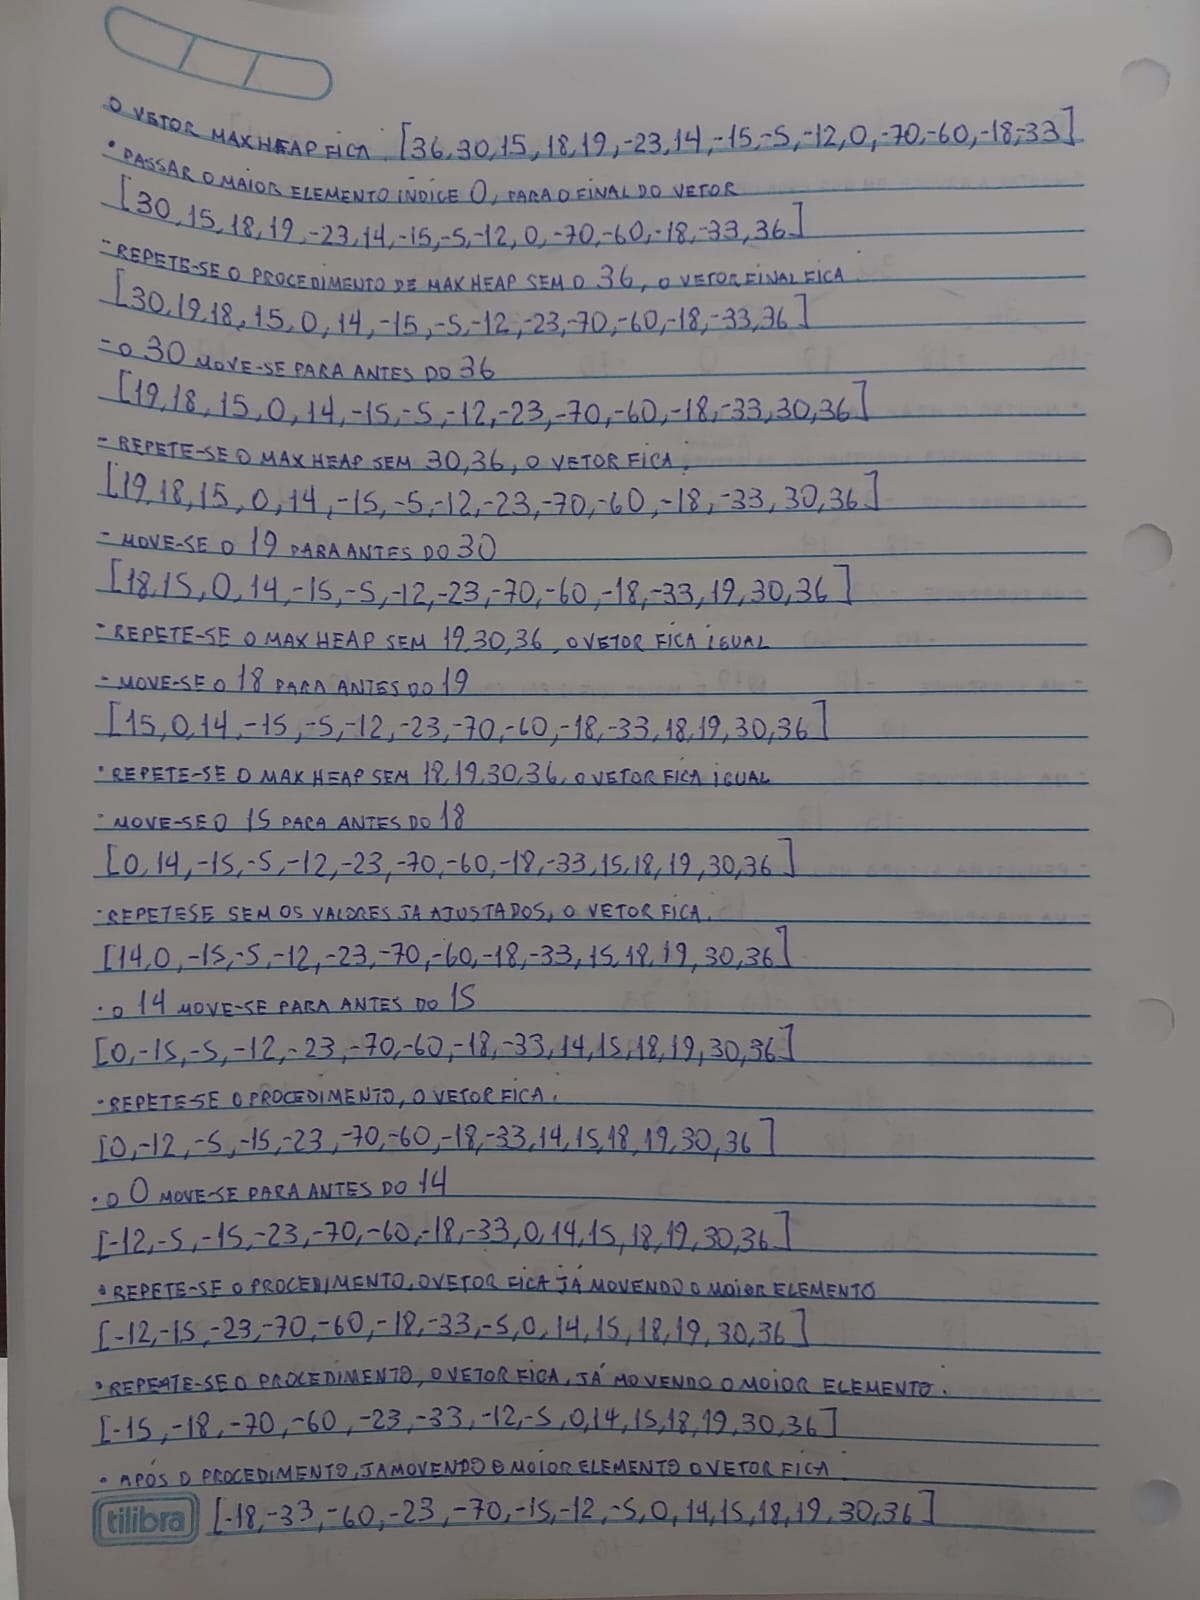 O VETOR MAX HEAP FICA: [36,30,15,18,19,-23,14,-15,-5,-12,0,-70,-60,-18,-33]
• PASSAR O MAIOR ELEMENTO ÍNDICE 0, PARA O FINAL DO VETOR
[30,15,18,19,-23,14,-15,-5,-12,0,-70,-60,-18,-33,36]
- REPETE-SE O PROCEDIMENTO DE MAX HEAP SEM O 36, O VETOR FINAL FICA
[30,19,18,15,0,14,-15,-5,-12,-23,-70,-60,-18,-33,36]
- O 30 MOVE-SE PARA ANTES DO 36
[19,18,15,0,14,-15,-5,-12,-23,-70,-60,-18,-33,30,36]
- REPETE-SE O MAX HEAP SEM 30,36, O VETOR FICA:
[19,18,15,0,14,-15,-5,-12,-23,-70,-60,-18,-33,30,36]
- MOVE-SE O 19 PARA ANTES DO 30
[18,15,0,14,-15,-5,-12,-23,-70,-60,-18,-33,19,30,36]
- REPETE-SE O MAX HEAP SEM 19,30,36, O VETOR FICA IGUAL
- MOVE-SE O 18 PARA ANTES DO 19
[15,0,14,-15,-5,-12,-23,-70,-60,-18,-33,18,19,30,36]
• REPETE-SE O MAX HEAP SEM 18,19,30,36, O VETOR FICA IGUAL
- MOVE-SE O 15 PARA ANTES DO 18
[0,14,-15,-5,-12,-23,-70,-60,-18,-33,15,18,19,30,36]
- REPETESE SEM OS VALORES JA AJUSTADOS, O VETOR FICA.
[14,0,-15,-5,-12,-23,-70,-60,-18,-33,15,18,19,30,36]
• O 14 MOVE-SE PARA ANTES DO 15
[0,-15,-5,-12,-23,-70,-60,-18,-33,14,15,18,19,30,36]
• REPETE-SE O PROCEDIMENTO, O VETOR FICA.
[0,-12,-5,-15,-23,-70,-60,-18,-33,14,15,18,19,30,36]
• O 0 MOVE-SE PARA ANTES DO 14
[-12,-5,-15,-23,-70,-60,-18,-33,0,14,15,18,19,30,36]
• REPETE-SE O PROCEDIMENTO, O VETOR FICA JÁ MOVENDO O MOIOR ELEMENTO
[-12,-15,-23,-70,-60,-18,-33,-5,0,14,15,18,19,30,36]
• REPEATE-SE O PROCEDIMENTO, O VETOR FICA, JÁ MOVENDO O MOIOR ELEMENTO.
[-15,-18,-70,-60,-23,-33,-12,-5,0,14,15,18,19,30,36]
• APÓS O PROCEDIMENTO, JA MOVENDO O MOIOR ELEMENTO O VETOR FICA
tilibra [-18,-33,-60,-23,-70,-15,-12,-5,0,14,15,18,19,30,36]